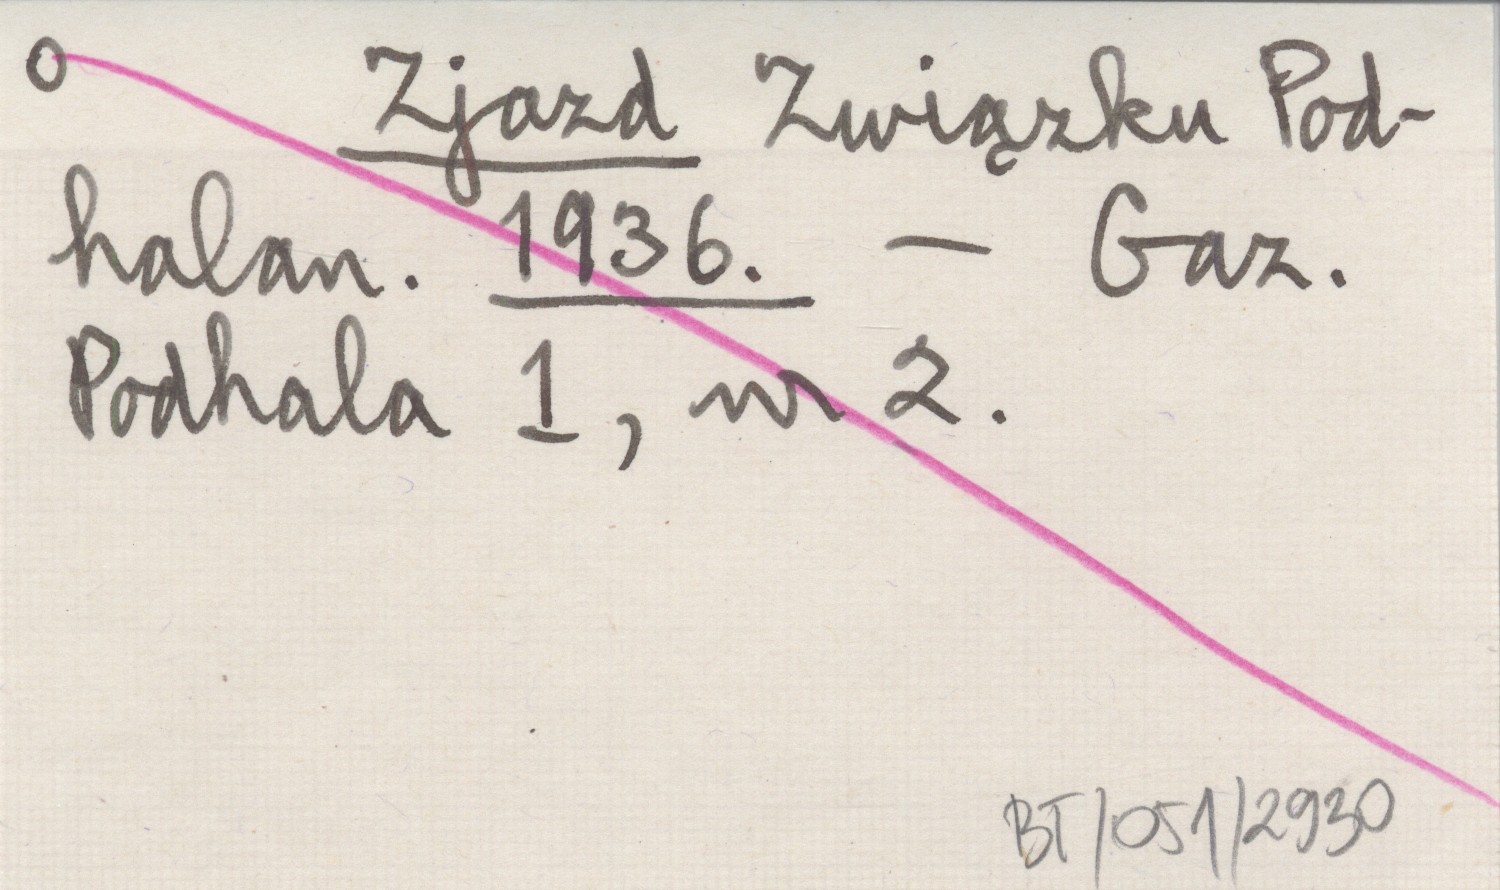 o Zjazd Związku Pod-
halan. 1936. — Gaz.
Podhala 1, nr 2.
BT/051/2930